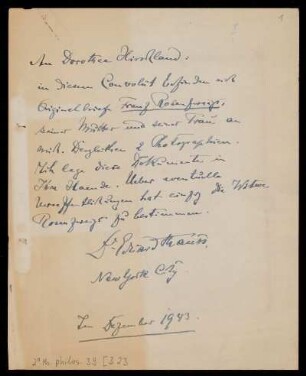 An Dorothea Hirschland.
in diesem Convolut befinden sich
Originalbriefe Franz Rosenzweigs,
seiner Mutter und seiner Frau an
mich. Desgleichen 2 Photographien.
Ich lege diese Dokumente in
Ihre Haende. Ueber eventuelle
Veroeffentlichungen hat einzig die Witwe
Rosenzweigs zu bestimmen.
Dr. Eduard Strauss
New York City
Im Dezember 1943.
1
2° Ms. philos. 39